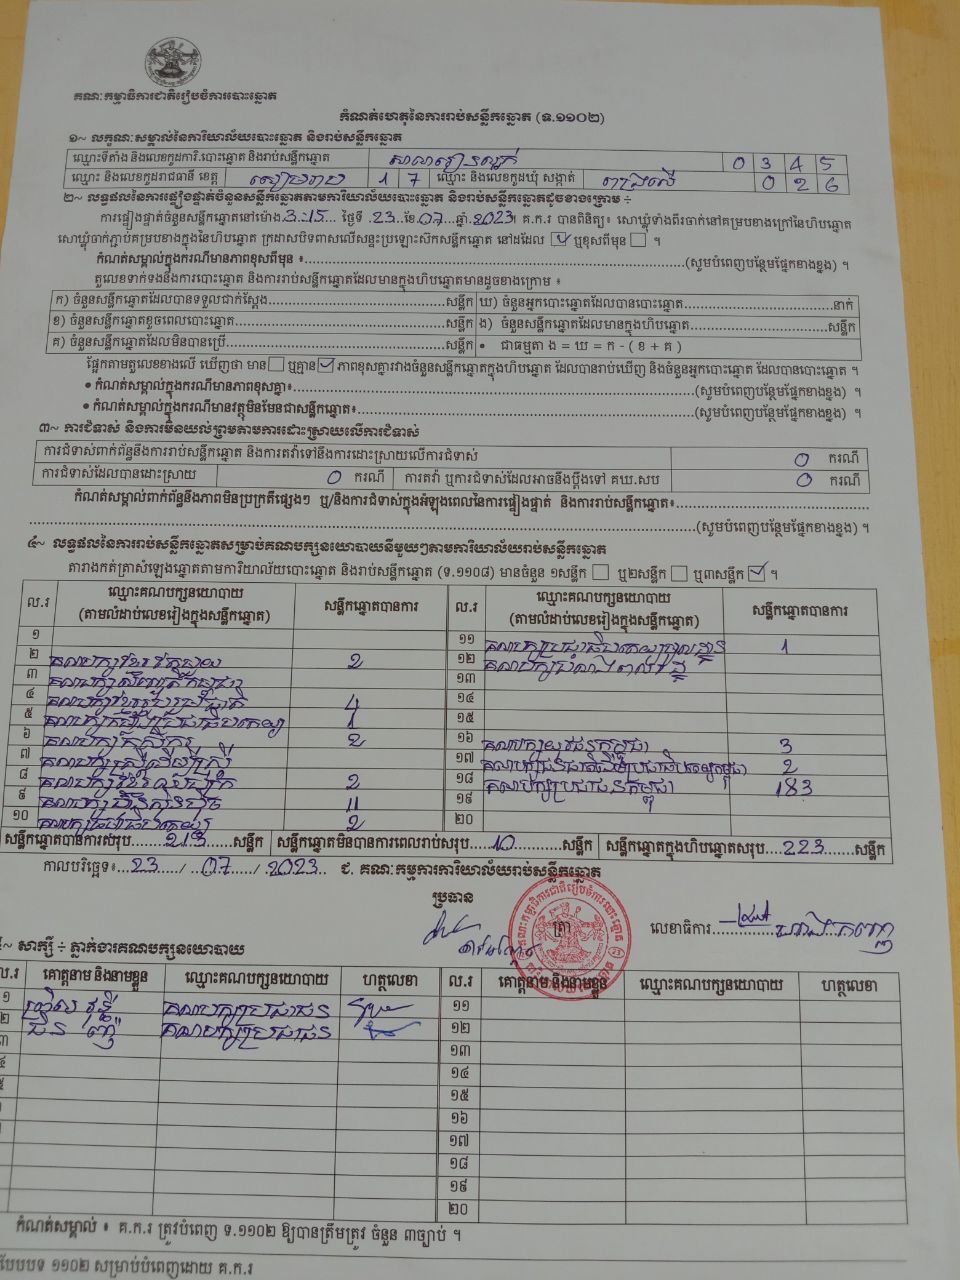 គណៈកម្មាធិការជាតិរៀបចំការបោះឆ្នោត
កំណត់హេតុនៃការរាប់សន្លឹកឆ្នោត (ទ.១១០២)
១~ លក្ខណៈសម្គាល់នៃការិយាល័យបោះឆ្នោត និងរាប់សន្លឹកឆ្នោត
ឈ្មោះទីតាំង និងលេខកូដការិ.បោះឆ្នោត និងរាប់សន្លឹកឆ្នោត 0 3 4 5
ឈ្មោះ និងលេខកូដរាជធានី ខេត្ត សៀមរាប 1 7 ឈ្មោះ និងលេខកូដឃុំ សង្កាត់ 0 2 6
២~ លទ្ធផលនៃការផ្ទៀងផ្ទាត់ចំនួនសន្លឹកឆ្នោតតាមការិយាល័យបោះឆ្នោត និងរាប់សន្លឹកឆ្នោតដូចខាងក្រោម ÷
ការផ្ទៀងផ្ទាត់ចំនួនសន្លឹកឆ្នោតនៅម៉ោង 3:15 ថ្ងៃទី 23 ខែ 07 ឆ្នាំ 2023។ គ.ក.រ បានពិនិត្យ៖ សោឃ្លុំទាំងពីរចាក់នៅគម្របខាងក្រៅនៃហិបឆ្នោត
សោឃ្លុំចាក់ភ្ជាប់គម្របខាងក្នុងនៃហិបឆ្នោត ក្រដាសបិទពាសលើសន្ទះប្រឡោះស៊កសន្លឹកឆ្នោត នៅដដែល ឬខុសពីមុន ។
កំណត់សម្គាល់ក្នុងករណីមានភាពខុសពីមុន ៖ (សូមបំពេញបន្ថែមផ្នែកខាងខ្នង) ។
តួលេខទាក់ទងនឹងការបោះឆ្នោត និងការរាប់សន្លឹកឆ្នោតដែលមានក្នុងហិបឆ្នោតមានដូចខាងក្រោម ៖
ក) ចំនួនសន្លឹកឆ្នោតដែលបានទទួលជាក់ស្តែង សន្លឹក ឃ) ចំនួនអ្នកបោះឆ្នោតដែលបានបោះឆ្នោត នាក់
ខ) ចំនួនសន្លឹកឆ្នោតខូចពេលបោះឆ្នោត សន្លឹក ង) ចំនួនសន្លឹកឆ្នោតដែលមានក្នុងហិបឆ្នោត សន្លឹក
គ) ចំនួនសន្លឹកឆ្នោតដែលមិនបានប្រើ សន្លឹក • ជាធម្មតា ង = ឃ = ក - ( ខ + គ )
ផ្អែកតាមតួលេខខាងលើ ឃើញថា មាន ឬគ្មាន ភាពខុសគ្នារវាងចំនួនសន្លឹកឆ្នោតក្នុងហិបឆ្នោត ដែលបានរាប់ឃើញ និងចំនួនអ្នកបោះឆ្នោត ដែលបានបោះឆ្នោត ។
• កំណត់សម្គាល់ក្នុងករណីមានភាពខុសគ្នា៖ (សូមបំពេញបន្ថែមផ្នែកខាងខ្នង) ។
• កំណត់សម្គាល់ក្នុងករណីមានវត្ថុមិនមែនជាសន្លឹកឆ្នោត៖ (សូមបំពេញបន្ថែមផ្នែកខាងខ្នង) ។
៣~ ការជំទាស់ និងការមិនយល់ព្រមតាមការដោះស្រាយលើការជំទាស់
ការជំទាស់ពាក់ព័ន្ធនឹងការរាប់សន្លឹកឆ្នោត និងការតវ៉ាទៅនឹងការដោះស្រាយលើការជំទាស់ 0 ករណី
ការជំទាស់ដែលបានដោះស្រាយ 0 ករណី ការតវ៉ា ឬការជំទាស់ដែលអាចនឹងប្តឹងទៅ គឃ.សប 0 ករណី
កំណត់សម្គាល់ពាក់ព័ន្ធនឹងភាពមិនប្រក្រតីផ្សេងៗ ឬ/និងការជំទាស់ក្នុងអំឡុងពេលនៃការផ្ទៀងផ្ទាត់ និងការរាប់សន្លឹកឆ្នោត៖
(សូមបំពេញបន្ថែមផ្នែកខាងខ្នង) ។
៤~ លទ្ធផលនៃការរាប់សន្លឹកឆ្នោតសម្រាប់គណបក្សនយោបាយនីមួយៗតាមការិយាល័យរាប់សន្លឹកឆ្នោត
តារាងកត់ត្រាសំឡេងឆ្នោតតាមការិយាល័យបោះឆ្នោត និងរាប់សន្លឹកឆ្នោត (ទ.១១០៨) មានចំនួន ១សន្លឹក ឬ២សន្លឹក ឬ៣សន្លឹក ។
ល.រ ឈ្មោះគណបក្សនយោបាយ (តាមលំដាប់លេខរៀងក្នុងសន្លឹកឆ្នោត) សន្លឹកឆ្នោតបានការ ល.រ ឈ្មោះគណបក្សនយោបាយ (តាមលំដាប់លេខរៀងក្នុងសន្លឹកឆ្នោត) សន្លឹកឆ្នោតបានការ
១ ១១ 1
២ 2 ១២
៣ ១៣
៤ គណបក្សខ្មែររួបរួមជាតិ 4 ១៤
៥ គណបក្សកម្លាំងប្រជាធិបតេយ្យ 1 ១៥
៦ 2 ១៦ គណបក្សយុវជនកម្ពុជា 3
៧ ១៧ 2
៨ 2 ១៨ គណបក្សប្រជាជនកម្ពុជា 183
៩ គណបក្សហ៊្វុនស៊ិនប៉ិច 11 ១៩
១០ 2 ២០
សន្លឹកឆ្នោតបានការសរុប 213 សន្លឹក សន្លឹកឆ្នោតមិនបានការពេលរាប់សរុប 10 សន្លឹក សន្លឹកឆ្នោតក្នុងហិបឆ្នោតសរុប 223 សន្លឹក
កាលបរិច្ឆេទ៖ 23 / 07 / 2023 ជ. គណៈកម្មការការិយាល័យរាប់សន្លឹកឆ្នោត
ប្រធាន
ត្រា លេខាធិការ
៥~ សាក្សី ÷ ភ្នាក់ងារគណបក្សនយោបាយ
ល.រ គោត្តនាម និងនាមខ្លួន ឈ្មោះគណបក្សនយោបាយ ហត្ថលេខា ល.រ គោត្តនាម និងនាមខ្លួន ឈ្មោះគណបក្សនយោបាយ ហត្ថលេខា
១ គណបក្សប្រជាជន ១១
២ គណបក្សប្រជាជន ១២
៣ ១៣
១៤
១៥
១៦
១៧
១៨
១៩
២០
កំណត់សម្គាល់ ៖ គ.ក.រ ត្រូវបំពេញ ទ.១១០២ ឱ្យបានត្រឹមត្រូវ ចំនួន ៣ច្បាប់ ។
បែបបទ ១១០២ សម្រាប់បំពេញដោយ គ.ក.រ